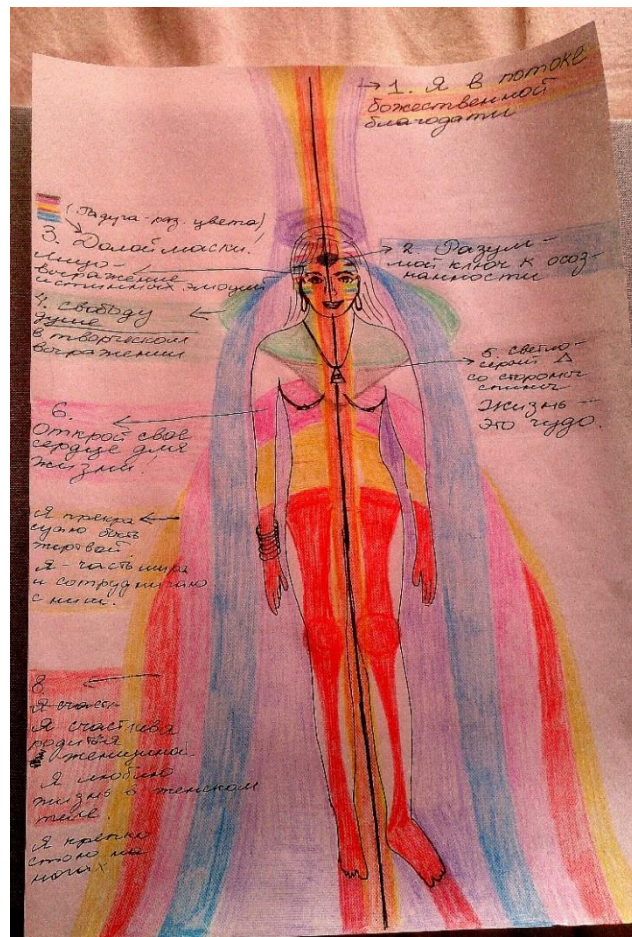 1. Я в потоке
божественной
благодати
(Радуга-раз. цвета)
3. Долой маски!
Лицо-
выражение
истинных эмоций.
2. Разум -
мой ключ к осоз-
нанности
4. Свободу
душе
в творческом
выражении
5. светло-
серый Δ
со стороны
спины
Жизнь -
это чудо.
6.
Открой свое
сердце для
жизни!
Я прекра
щаю быть
жертвой.
Я - часть мира
и сотрудничаю
с ним.
8.
Я счаст
Я счастлива
родиться
женщиной.
Я люблю
жизнь в женском
теле.
Я крепко
стою на
ногах